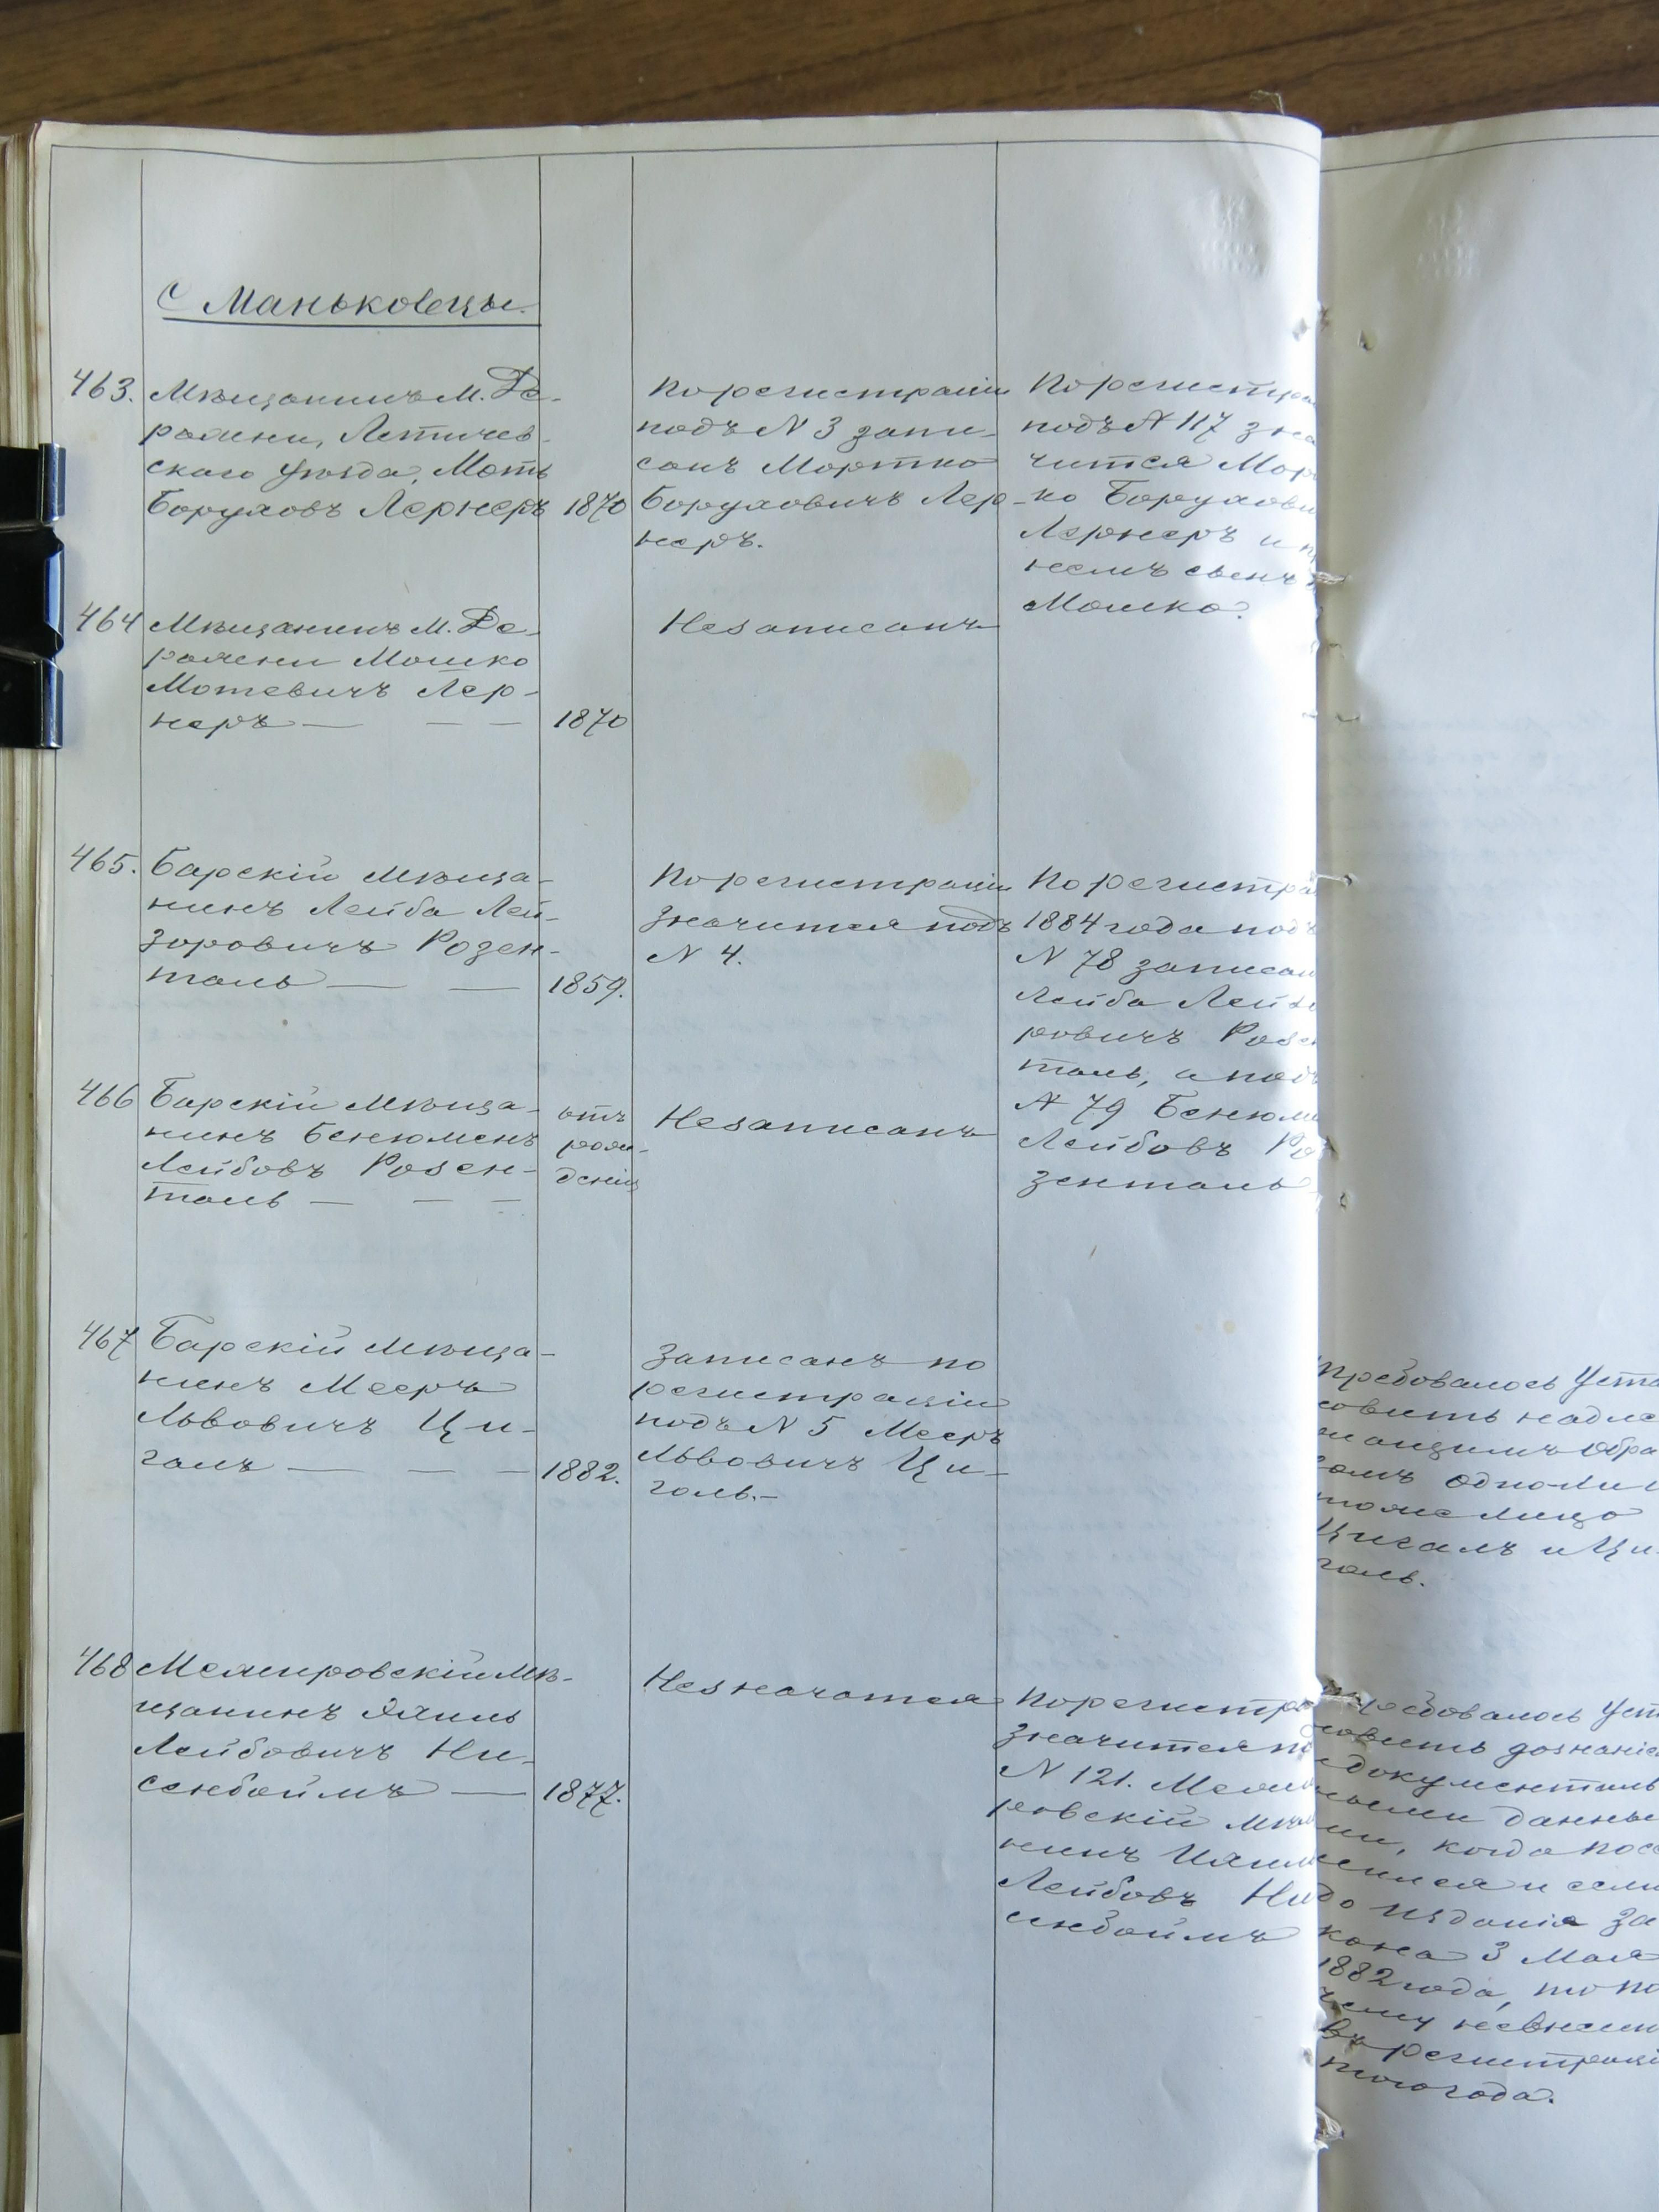 с Маньковецы.
463.
Мѣщанинъ М. Де-
ражни, Летичев-
скаго уѣзда, Моть
Боруховъ Лернеръ
1870
По регистраціи
подъ N 3 запи-
санъ Мортко
Боруховичъ Лер-
неръ.
По регистра
подъ N 117 зна
чится Мор
ко Борухови
Лернеръ и п
немъ сынъ
Мошко.
464
Мѣщанинъ М. Де-
ражни Мошко
Мотевичъ Лер-
неръ — — —
1870
Незаписанъ
465.
Барскій мѣща-
нинъ Лейба Лей-
зоровичъ Розен-
таль — —
1859.
По регистраціи
значится подъ
N 4.
По регистра
1884 года подъ
N 78 записан
Лейба Лейзо
ровичъ Розен
таль, а подъ
N 79 Бенюми
Лейбовъ Ро
зенталь
466
Барскій мѣща-
нинъ Бенюменъ
Лейбовъ Розен-
таль — — —
отъ
рож-
денія
Незаписанъ
467
Барскій мѣща-
нинъ Мееръ
Львовичъ Ци-
галъ — — —
1882.
Записанъ по
регистраціи
подъ N 5 Мееръ
Львовичъ Ци-
голь.—
Требовалось уста
овить надле
жащимъ обра
омъ одно ли и
тоже лицо
Цигалъ и Ци-
голь.
468
Межировскій мѣ-
щанинъ Яхиль
Лейбовичъ Ни-
сенбоймъ —
1877.
Незначатся
По регистра
значится по
N 121. Межи
ровскій мѣща
нинъ Ихиль
Лейбовъ Ни
сенбоймъ
требовалось уст
овить дознаніе
документаль
ными данны
ми, когда посе
лился и если
до изданія за
кона 3 Мая
1882 года, то по
чему невнесен
въ регистраці
того года.